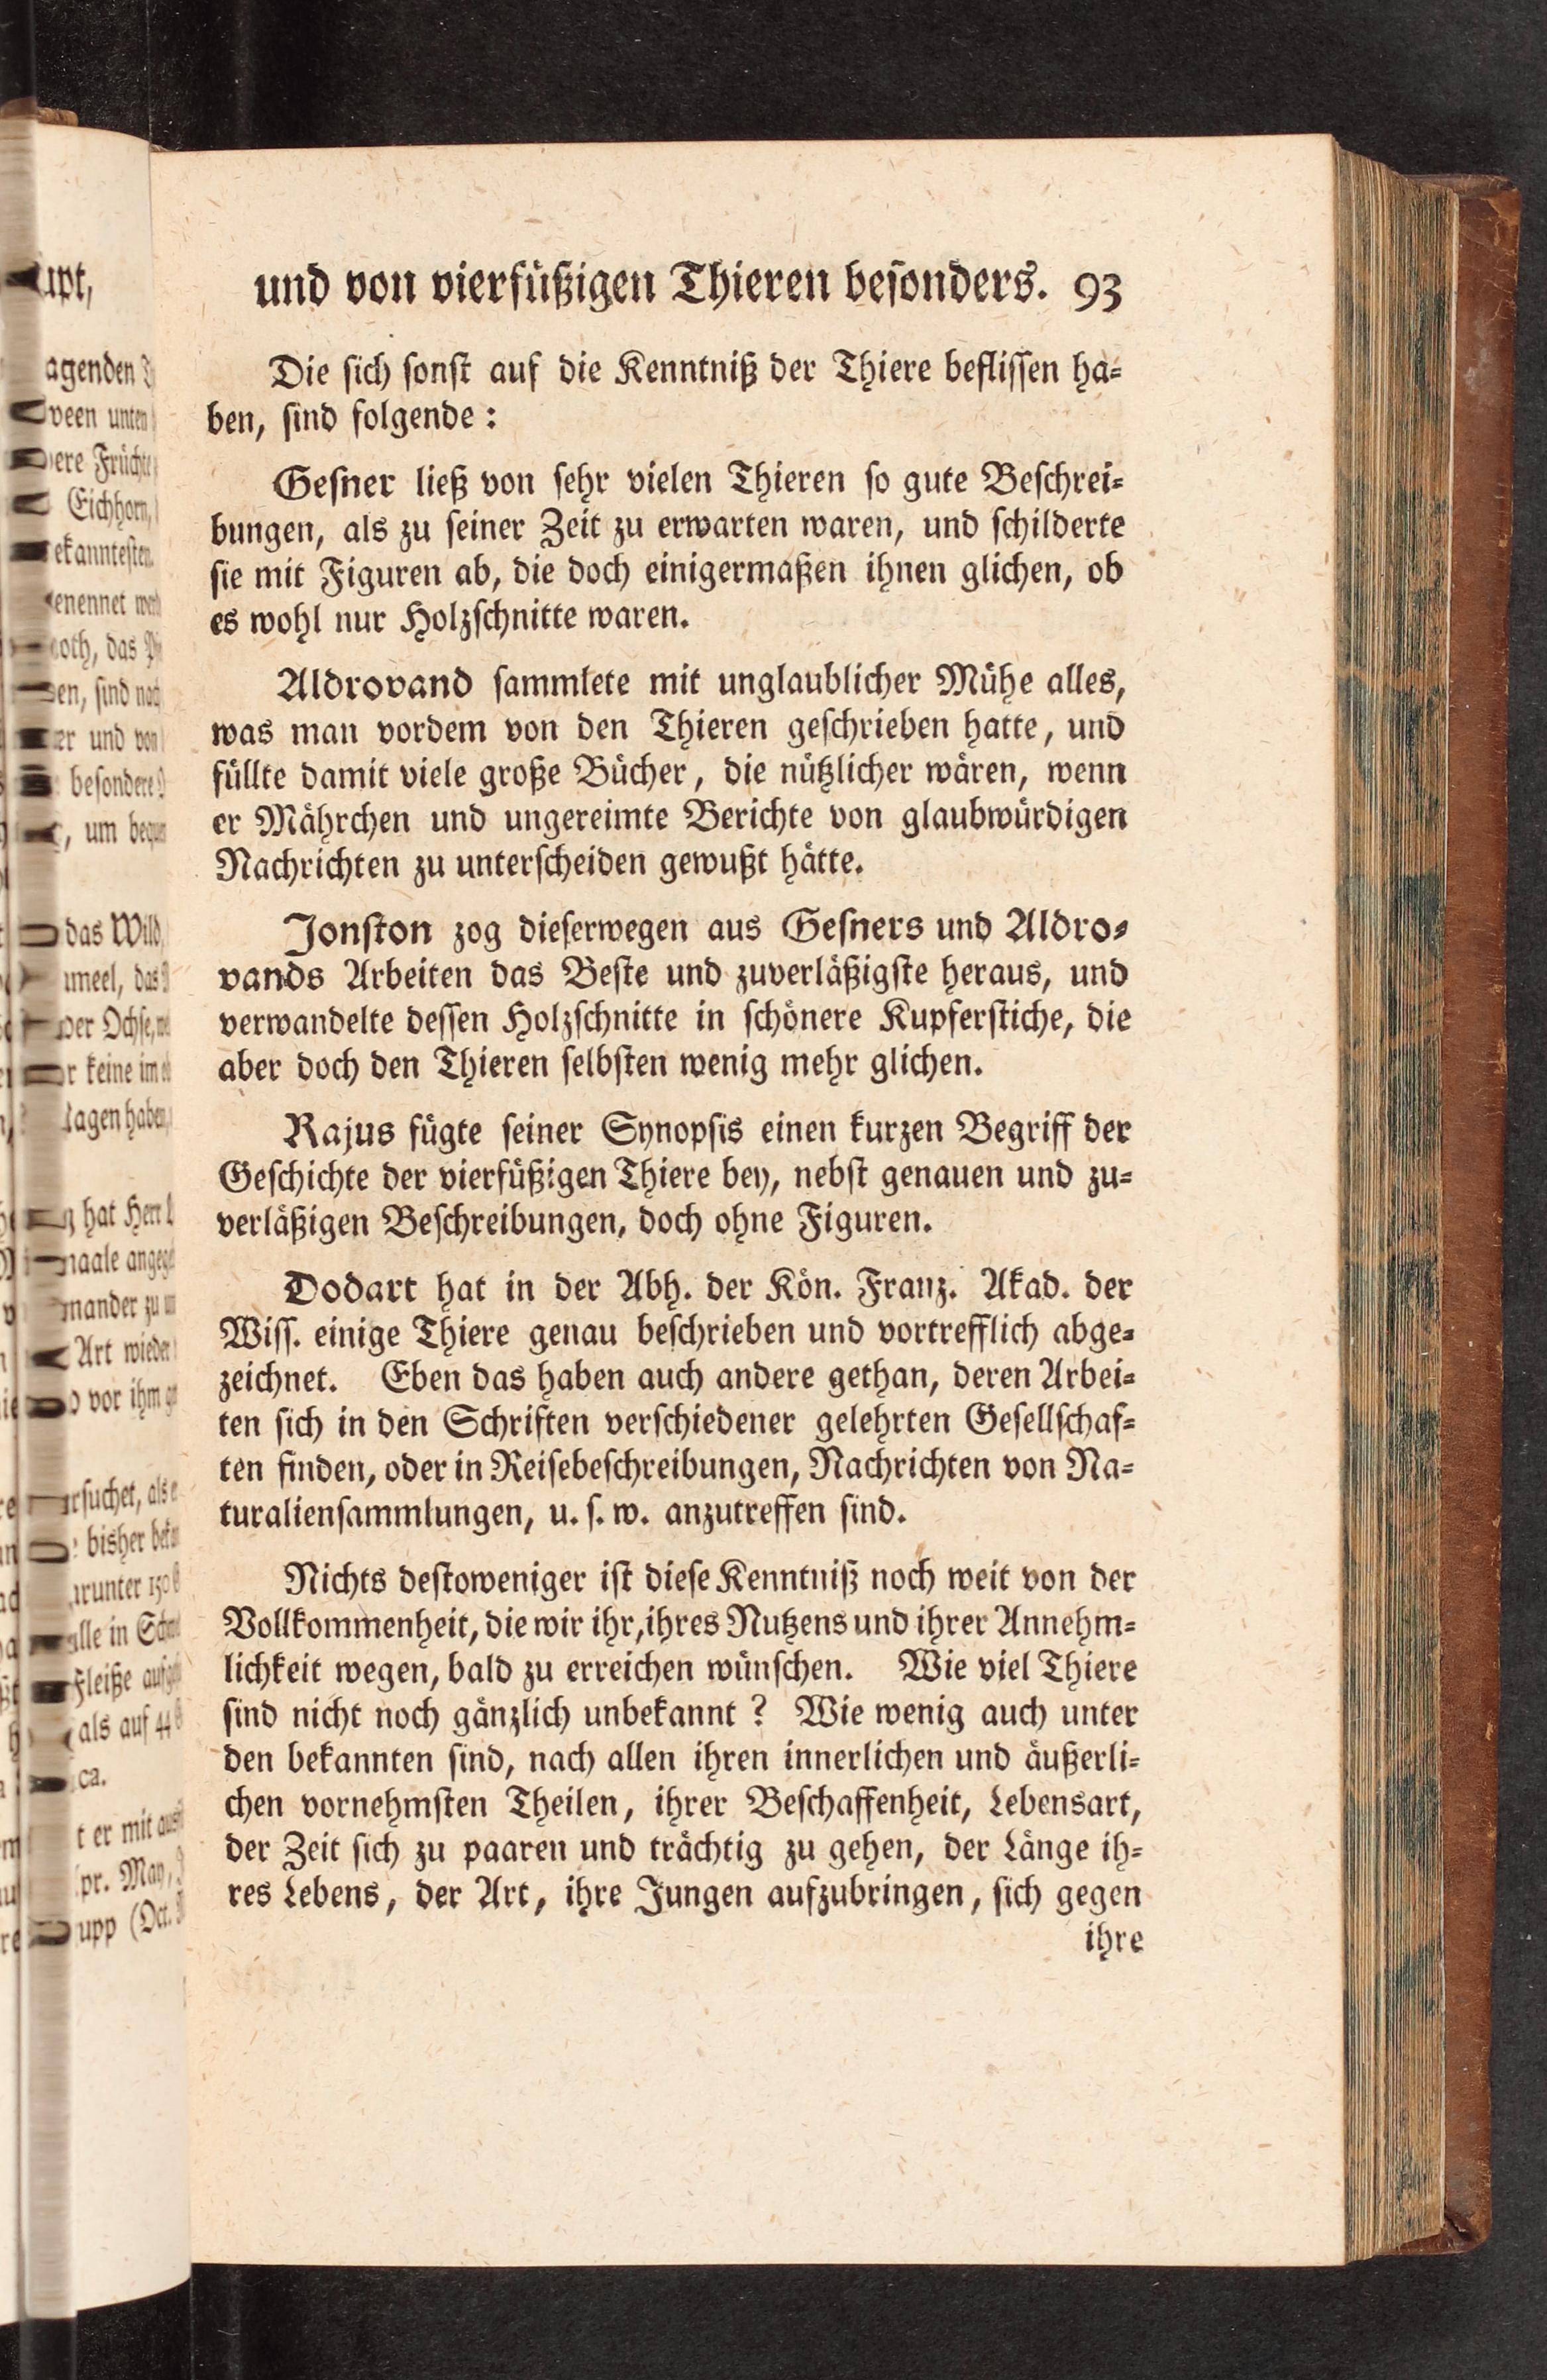 und von vierfüßigen Thieren beſonders. 93
Die ſich ſonſt auf die Kenntniß der Thiere befliſſen ha-
ben, ſind folgende:
Geſner ließ von ſehr vielen Thieren ſo gute Beſchrei-
bungen, als zu ſeiner Zeit zu erwarten waren, und ſchilderte
ſie mit Figuren ab, die doch einigermaßen ihnen glichen, ob
es wohl nur Holzſchnitte waren.
Aldrovand ſammlete mit unglaublicher Mühe alles,
was man vordem von den Thieren geſchrieben hatte, und
füllte damit viele große Bücher, die nützlicher wären, wenn
er Mährchen und ungereimte Berichte von glaubwürdigen
Nachrichten zu unterſcheiden gewußt hätte.
Jonſton zog dieſerwegen aus Geſners und Aldro-
vands Arbeiten das Beſte und zuverläßigſte heraus, und
verwandelte deſſen Holzſchnitte in ſchönere Kupferſtiche, die
aber doch den Thieren ſelbſten wenig mehr glichen.
Rajus fügte ſeiner Synopſis einen kurzen Begriff der
Geſchichte der vierfüßigen Thiere bey, nebſt genauen und zu-
verläßigen Beſchreibungen, doch ohne Figuren.
Dodart hat in der Abh. der Kön. Franz. Akad. der
Wiſſ. einige Thiere genau beſchrieben und vortrefflich abge-
zeichnet. Eben das haben auch andere gethan, deren Arbei-
ten ſich in den Schriften verſchiedener gelehrten Geſellſchaf-
ten finden, oder in Reiſebeſchreibungen, Nachrichten von Na-
turalienſammlungen, u. ſ. w. anzutreffen ſind.
Nichts deſtoweniger iſt dieſe Kenntniß noch weit von der
Vollkommenheit, die wir ihr, ihres Nutzens und ihrer Annehm-
lichkeit wegen, bald zu erreichen wünſchen. Wie viel Thiere
ſind nicht noch gänzlich unbekannt? Wie wenig auch unter
den bekannten ſind, nach allen ihren innerlichen und äußerli-
chen vornehmſten Theilen, ihrer Beſchaffenheit, Lebensart,
der Zeit ſich zu paaren und trächtig zu gehen, der Länge ih-
res Lebens, der Art, ihre Jungen aufzubringen, ſich gegen
ihre